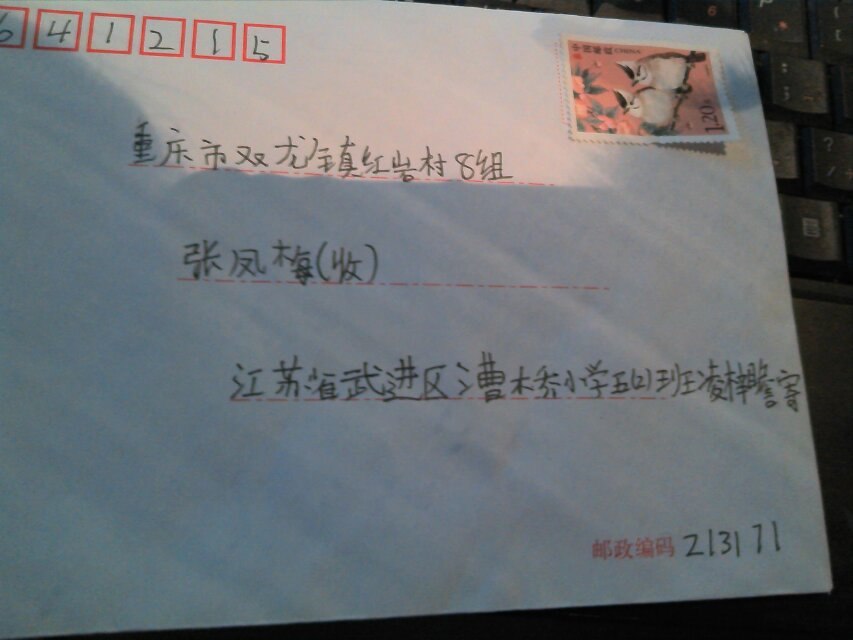 641215
中国邮政 CHINA
1.20元
重庆市双龙镇红岩村8组
张凤梅(收)
江苏省武进区漕桥小学五(2)班凌梓瞻寄
邮政编码 213171